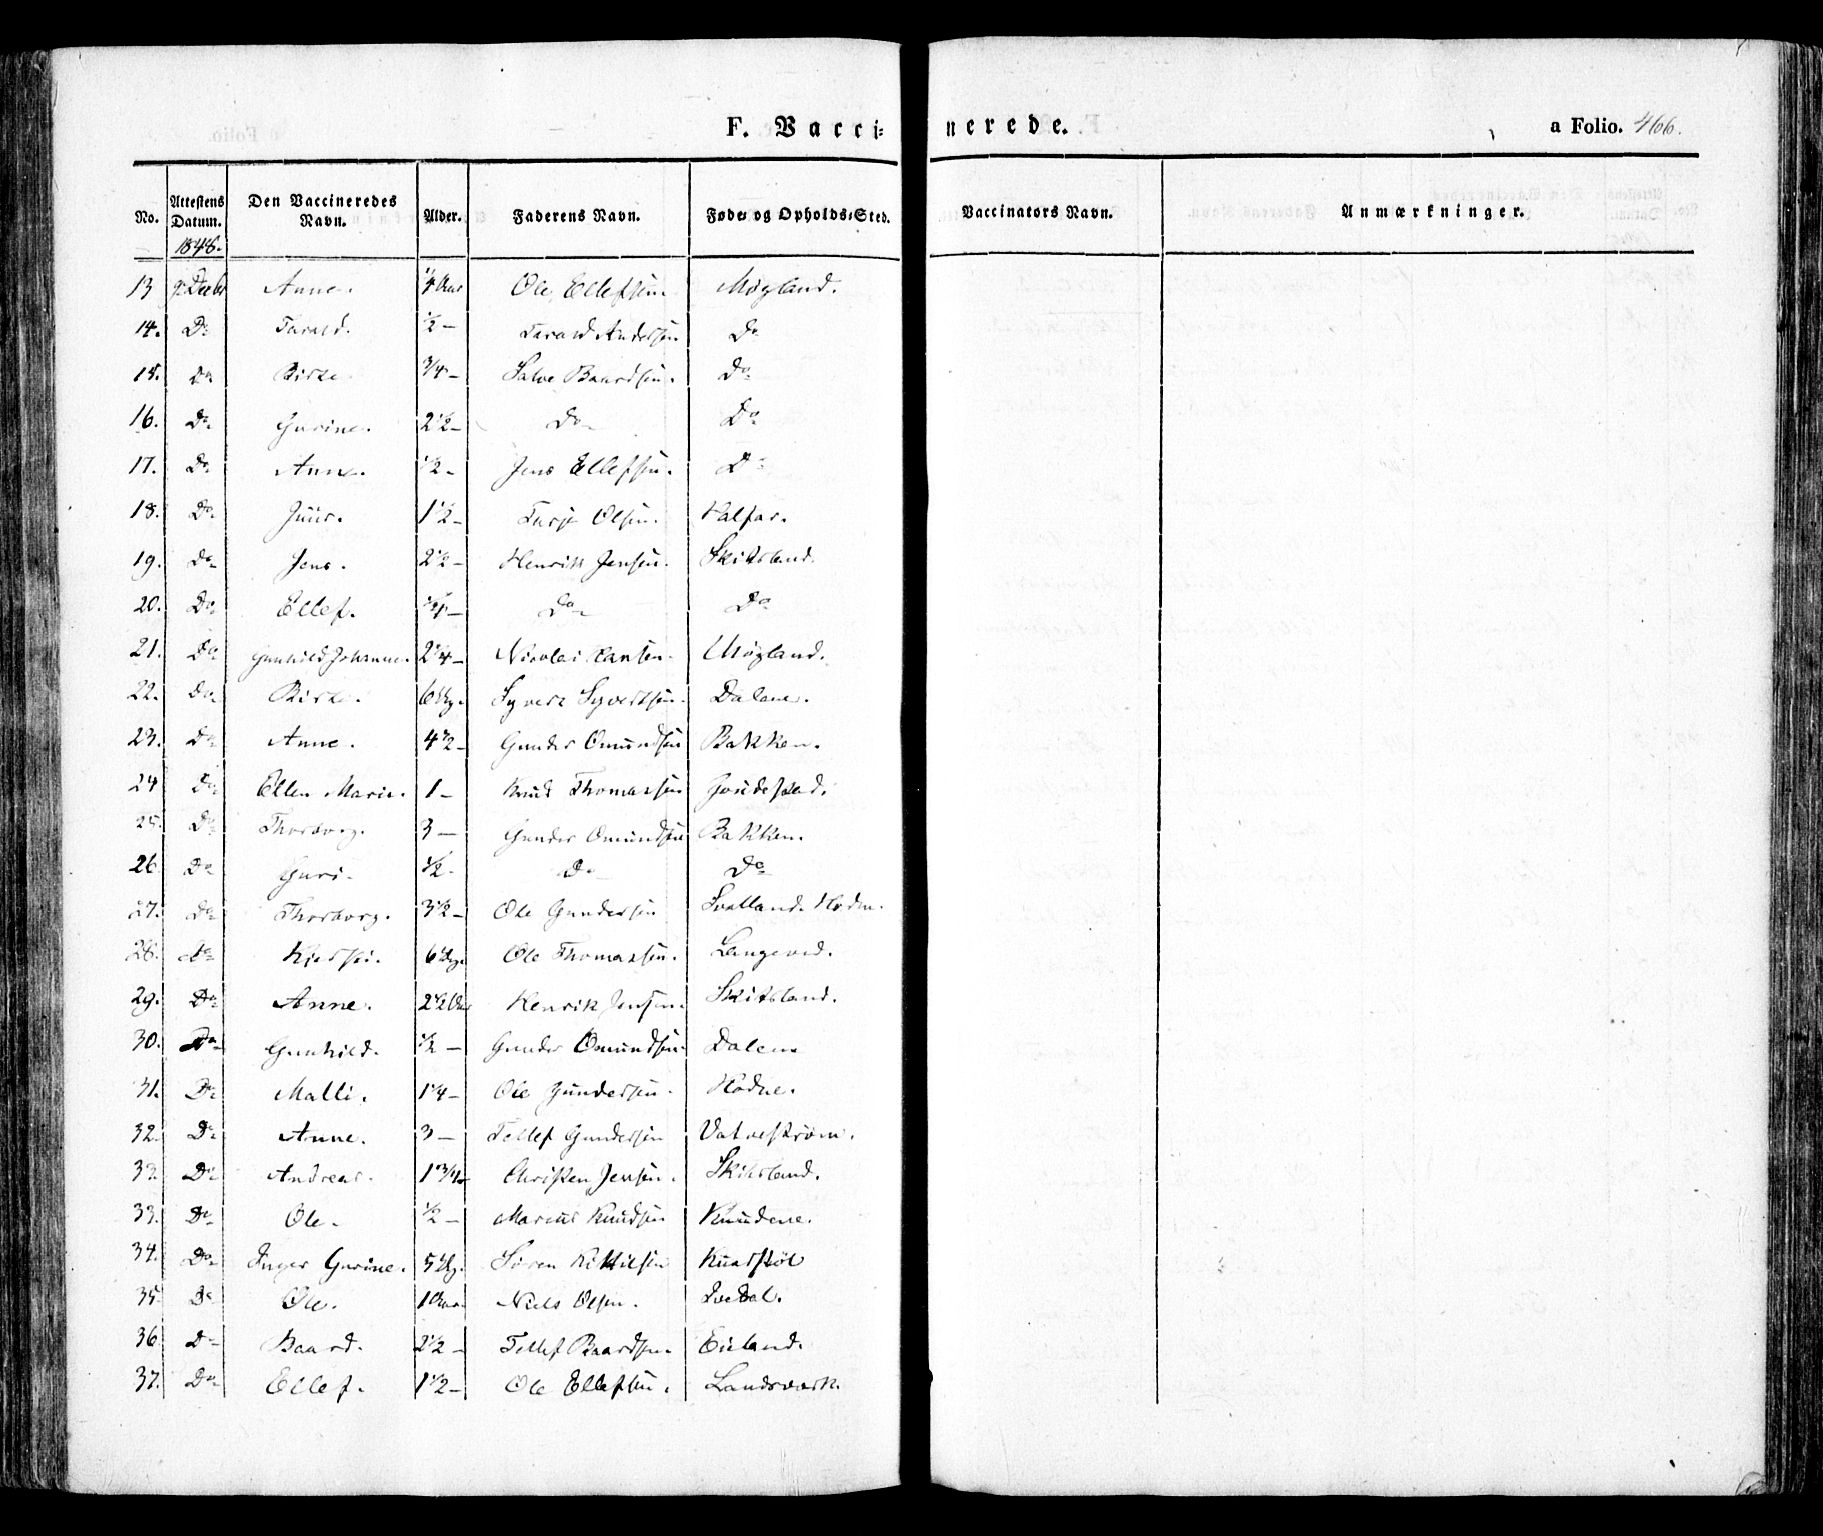 F. Vacci-
nerede.
a Folio. 466.
No. Attestens Datum. Den Vaccineredes Navn. Alder. Faderens Navn. Føde- og Opholds-Sted. Vaccinators Navn. Anmærkninger.
1848.
13 9 Decbr Anne. 1/4 Aar Ole Ellefsen Møgland.
14. Do Tarald. 1/2 – Tarald Andersen Do
15. Do Birte. 3/4 – Salve Baardsen. Do
16. Do Gurine. 2 1/2 – Do Do
17. Do Anne. 1/2 – Jens Ellefsen. Do
18. Do Juur. 1 1/2 – Tarje Olsen. Halfar.
19. Do Jens. 2 1/2 – Henrik Jensen. Skitsland.
20. Do Ellef. Do Do
21. Do Gunhild Johanne. 2 1/4 – Nicolai Hansen. Møgland.
22. Do Birte. 6 Syvert Syvertsen. Dalane.
23. Do Anne. 4 1/2 – Gunder Omundsen Bakken.
24 Do Ellen Marie. 1 – Knud Thomassen
25. Do Thorborg. 3 – Gunder Omundsen Bakken.
26 Do Guri. 1/2 – Do Do
27. Do Thorborg. 3 1/2 – Ole Gundersen Hodne.
28. Do Kjersti. 6 Ole Thomassen. Langeved.
29. Do Anne. 2 1/2 Aar Henrik Jensen. Skitsland.
30. Do Gunhild. 1/2 – Gunder Omundsen Dalene
31. Do Malli. 1 1/4 – Ole Gundersen. Hodne.
32. Do Anne. 3 – Tellef Gundersen Vatnestrøm.
33. Do Andreas. 1 3/4 – Christen Jensen. Skitsland.
33. Do Ole. 1/2 – Marcus Knudsen Knudene.
34. Do Inger Gurine. 5 Søren Kittilsen
35. Do Ole. 1 Aar. Niels Olsen.
36. Do Baard. 2 1/2 – Tellef Baardsen. Eieland.
37. Do Ellef. 1 1/2 – Ole Ellefsen. Landsværk.